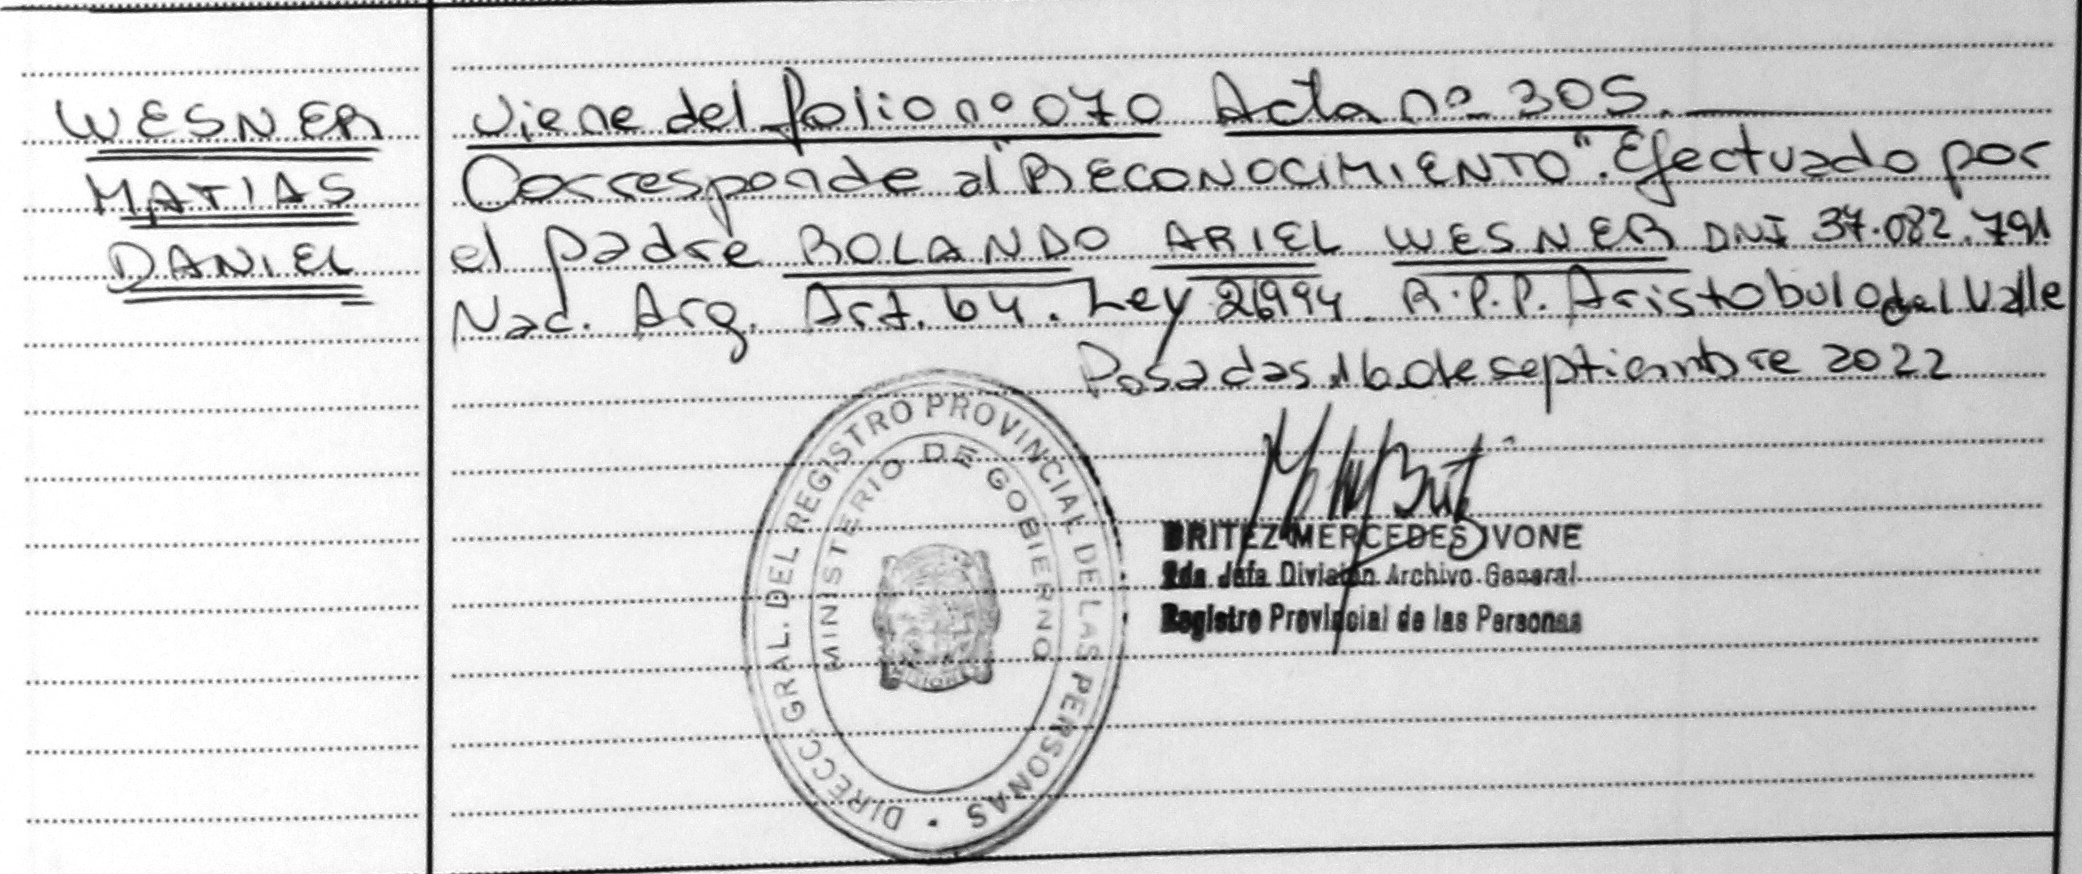 WESNER
MATIAS
DANIEL
Viene del folio nº 070 Acta nº 305.
Corresponde al "RECONOCIMIENTO". Efectuado por
el padre ROLANDO ARIEL WESNER DNI 37.082.791
Nac. Arg. Art. 64. Ley 26994. R.P.P. Aristobulo del Valle
Posadas 16 de septiembre 2022
DIRECC. GRAL. DEL REGISTRO PROVINCIAL DE LAS PERSONAS
MINISTERIO DE GOBIERNO
BRITEZ MERCEDES IVONE
2da Jefa División Archivo General
Registro Provincial de las Personas